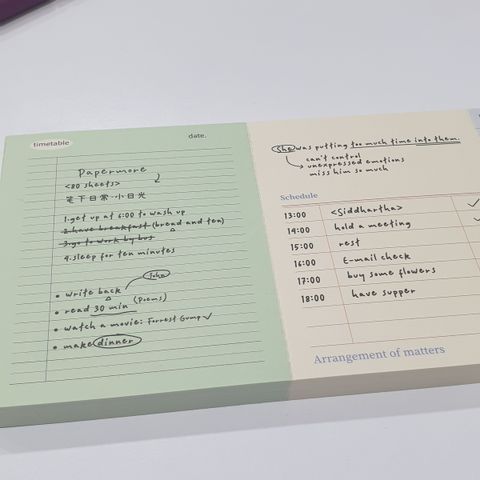 timetable
date.
Papermore
<80 sheets>
笔下日常·小日光
1.get up at 6:00 to wash up
2.have breakfast (bread and ten)
3.go to work by bus
4.sleep for ten minutes
John
• write back
• read 30 min (Poems)
• watch a movie: Forrest Gump ✓
• make dinner
She was putting too much time into them.
can't control
unexpressed emotions
miss him so much
Schedule
13:00 <Siddhartha>
14:00 hold a meeting
15:00 rest
16:00 E-mail check
17:00 buy some flowers
18:00 have supper
Arrangement of matters